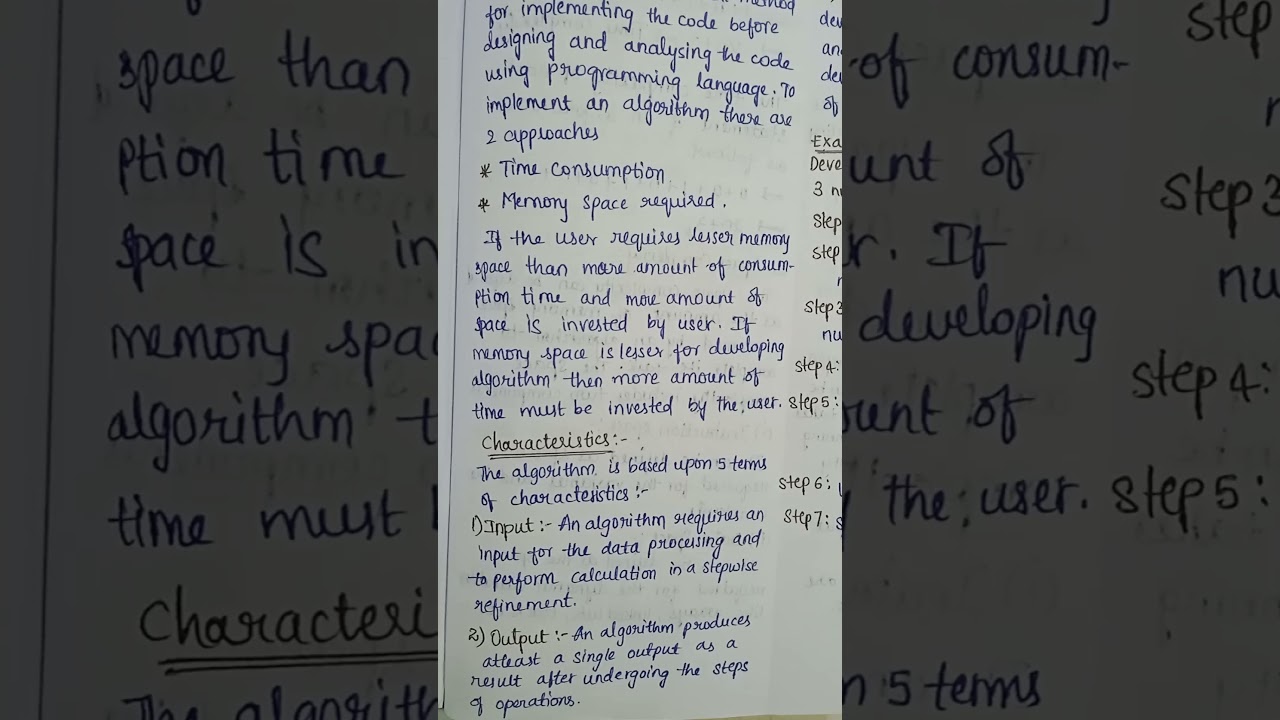 for implementing the code before
designing and analysing the code
using programming language. To
implement an algorithm there are
2 approaches
* Time consumption.
* Memory space required.
If the user requires lesser memory
space than more amount of consum-
ption time and more amount of
space is invested by user. If
memory space is lesser for developing
algorithm then more amount of
time must be invested by the user.
Characteristics :-
The algorithm is based upon 5 terms
of characteristics :-
1) Input :- An algorithm requires an
input for the data processing and
to perform calculation in a stepwise
refinement.
2) Output :- An algorithm produces
atleast a single output as a
result after undergoing the steps
of operations.
Exa
Deve
3 n
Step
step
step 3
nu
step 4:
step 5:
step 6:
Step 7:
space than
ption time
space is in
memory spa
algorithm t
time must
Characteri
The algorith
of consum-
unt of
r. If
developing
unt of
the user.
n 5 terms
step
Step 3
nu
step 4:
step 5: